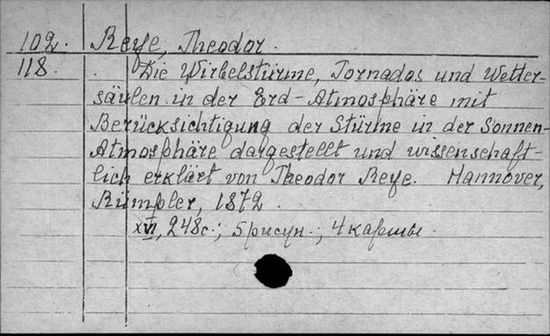 102. Reye, Theodor.
118. Die Wirbelstürme, Tornados und Wetter-
säulen in der Erd-Atmosphäre mit
Berücksichtigung der Stürme in der Sonnen-
Atmosphäre dargestellt und wissenschaft-
lich erklärt von Theodor Reye. Hannover,
Rümpler, 1872.
XVI, 248с.; 5 рисун.; 4 карты.